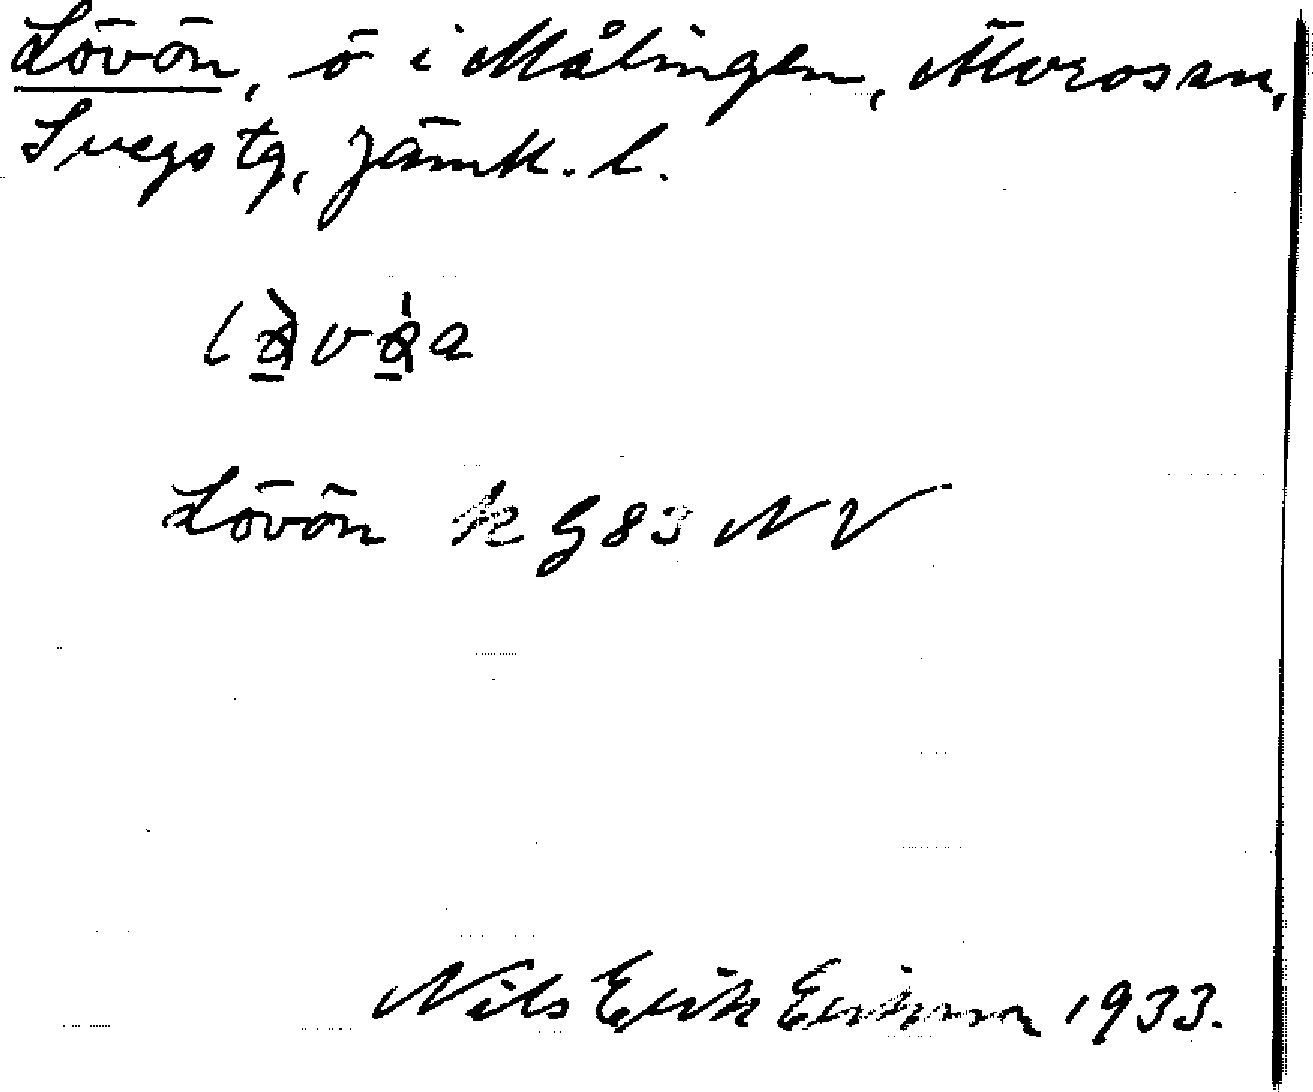 Lövön, ö i Målingen, Älvros sn,
Svegs tg, Jämtl. l.
Lövön k g 83 NV
Nils Erik Eriksson 1933.